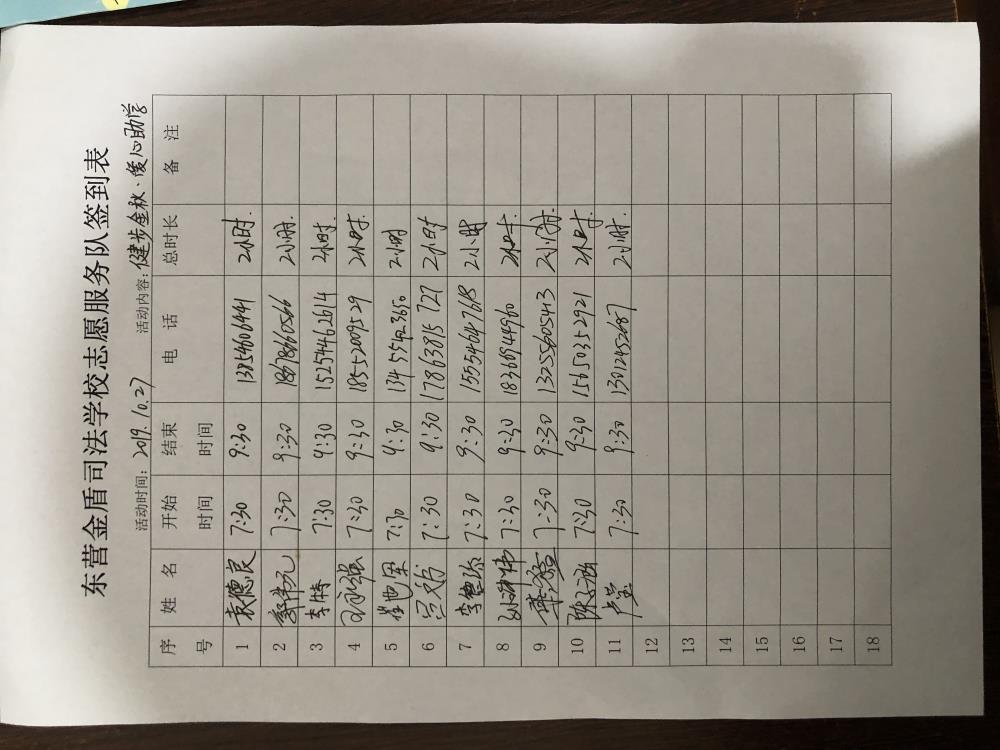 东营金盾司法学校志愿服务队签到表
活动时间: 2019.10.27 活动内容: 健步金秋、爱心助学
序号 姓 名 开始时间 结束时间 电 话 总时长 备 注
1 袁德良 7:30 9:30 13854606441 2小时.
2 郭伟元 7:30 9:30 18678660566 2小时.
3 李特 7:30 9:30 15254462614 2小时.
4 7:30 9:30 18552009529 2小时.
5 7:30 9:30 13455423650 2小时
6 7:30 9:30 17863815727 2小时
7 7:30 9:30 15554647618 2小时
8 7:30 9:30 18366944960 2小时.
9 7-30 9:30 13255605413 2小时.
10 7:30 9:30 15650352921 2小时.
11 7:30 9:30 13012452687 2小时.
12
13
14
15
16
17
18